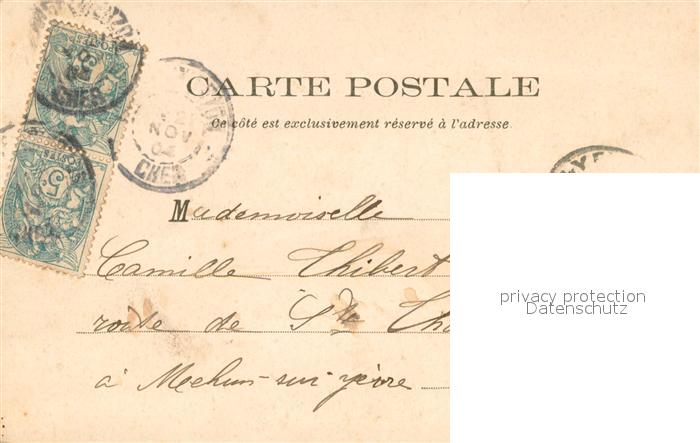 CARTE POSTALE
Ce côté est exclusivement réservé à l'adresse.
Mademoiselle
Camille Thibert
route de Ste
à Mehun-sur-yèvre
privacy protection
Datenschutz
POSTES
5
NOV
04
CHER